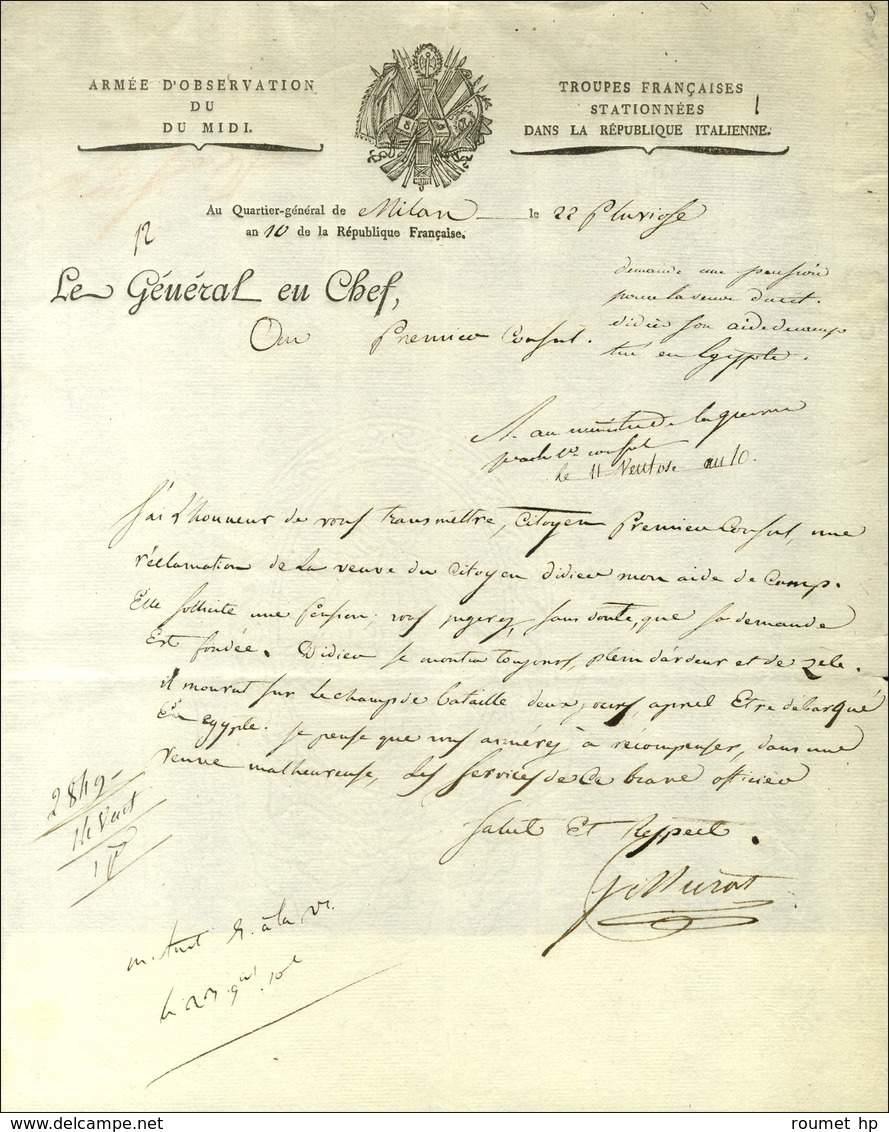 ARMÉE D'OBSERVATION
DU
DU MIDI.
TROUPES FRANÇAISES
STATIONNÉES
DANS LA RÉPUBLIQUE ITALIENNE.
Au Quartier-général de Milan le 22 Pluviose
an 10 de la République Française.
12
Le Général en Chef,
Au Premier Consul.
demande une pension
pour la veuve du cit.
didier son aide de camp
tué en Egypte.
au ministre de la guerre
par le 1er consul
le 11 Ventose an 10.
J'ai l'honneur de vous transmettre, Citoyen Premier Consul, une
réclamation de la veuve du Citoyen didier mon aide de Camp.
Elle sollicite une Pension; vous jugerez, sans doute, que sa demande
Est fondée. Didier se montra toujours, plein d'ardeur et de zele.
il mourut sur le champ de bataille deux jours, après Etre débarqué
En egypte. je pense que vous aimerez à récompenser, dans une
veuve malheureuse, les services de ce brave officier
Salut Et Respect.
J Murat
2849
14 Vent
à la
roumet hp